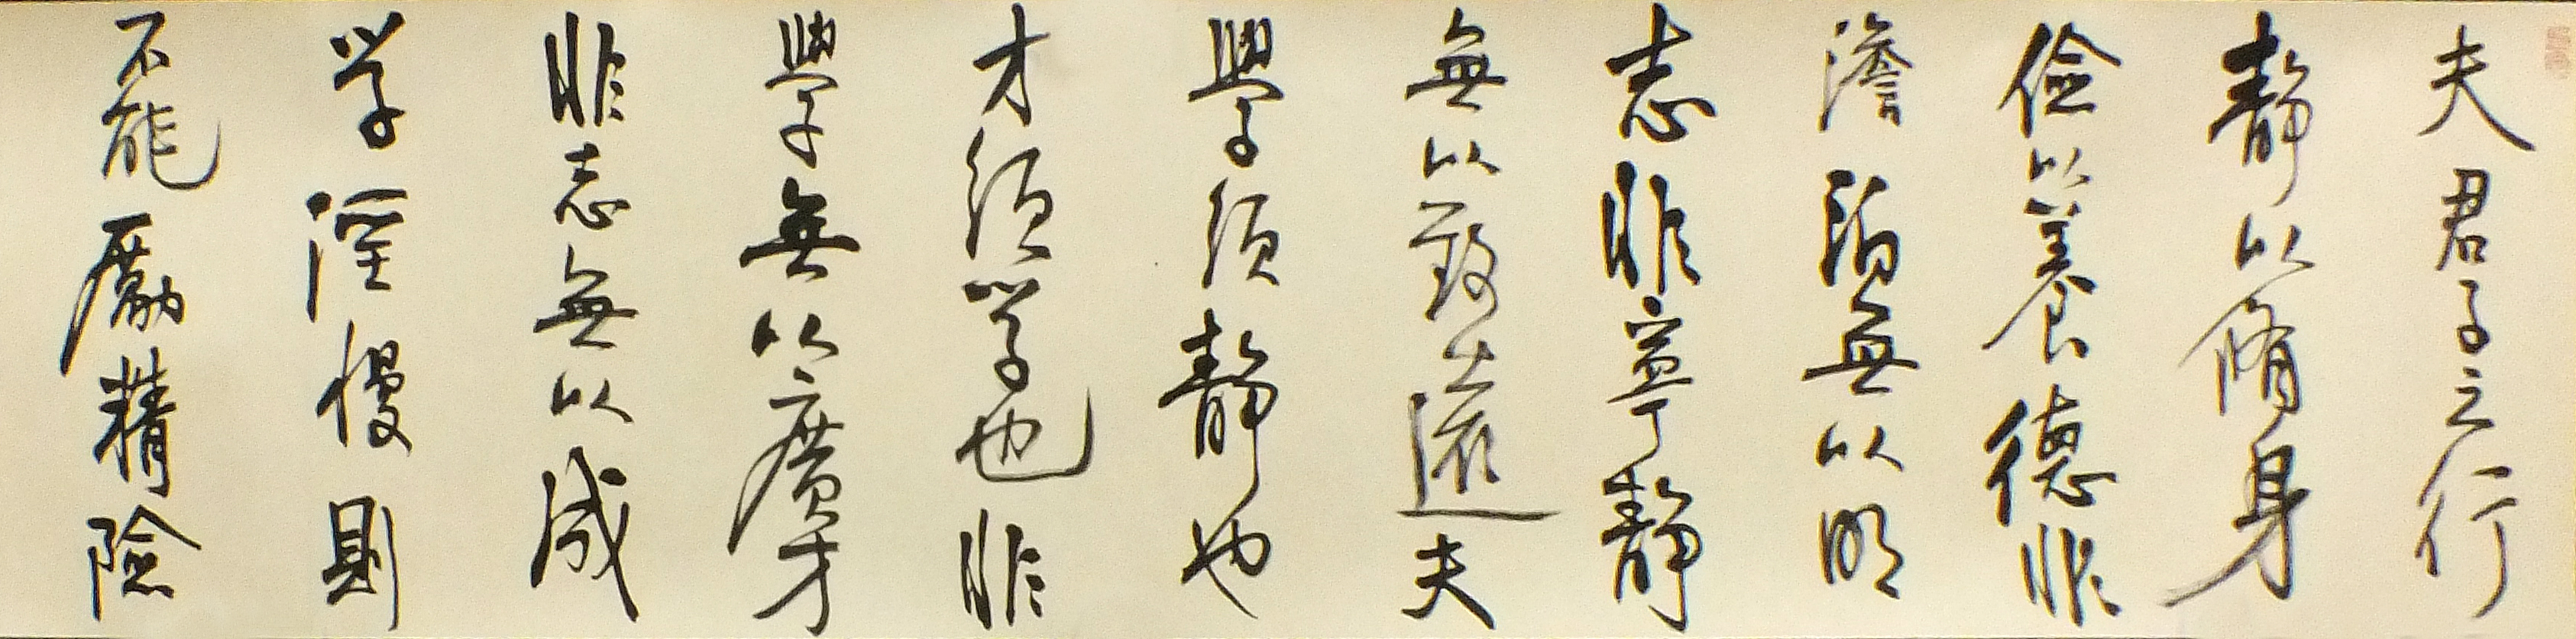 夫君子之行
靜以脩身
儉以養德非
澹泊無以明
志非寧靜
無以致遠夫
學須靜也
才須学也非
學無以廣才
非志無以成
学淫慢則
不能勵精險